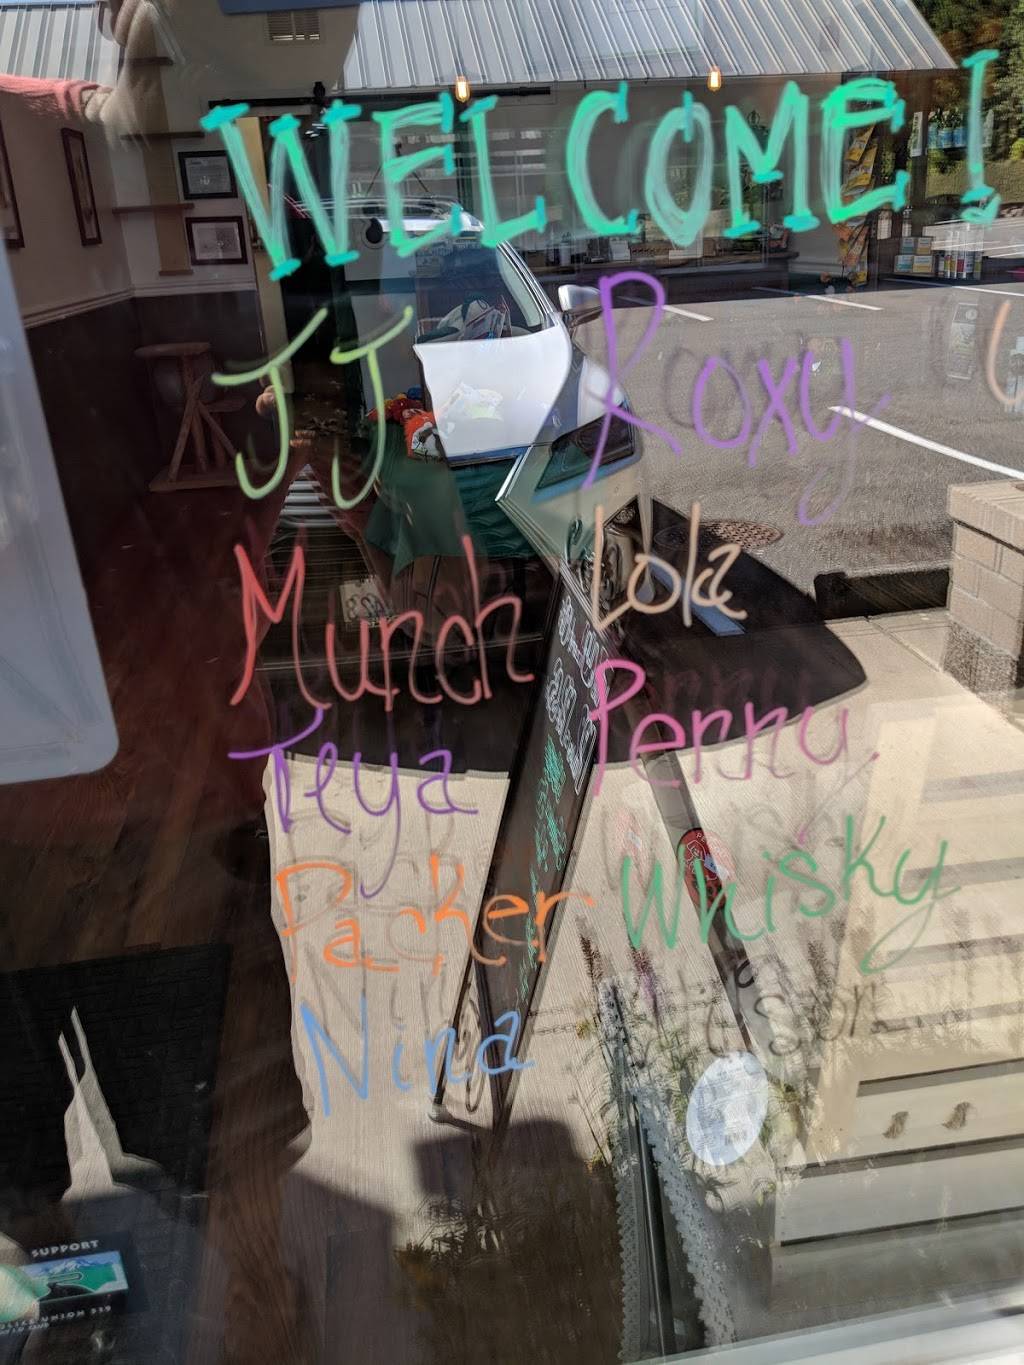 WELCOME!
JJ
Roxy
Munch
Lola
Teya
Penny
Parker
Whisky
Nina
SUPPORT